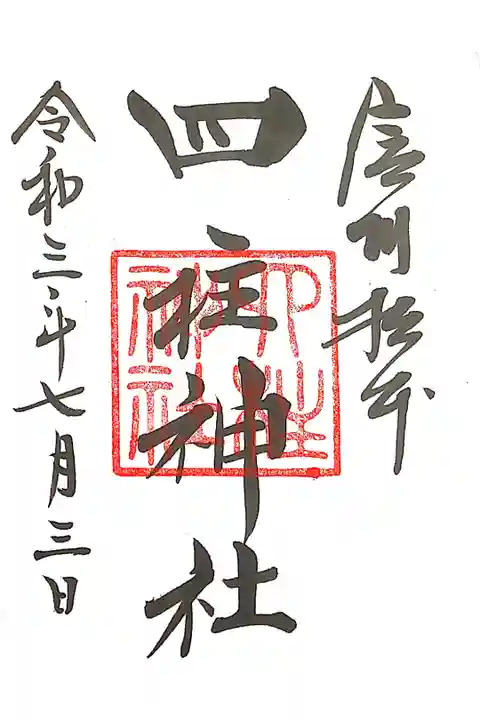 信州松本
四柱神社
四柱
神社
令和三年七月三日